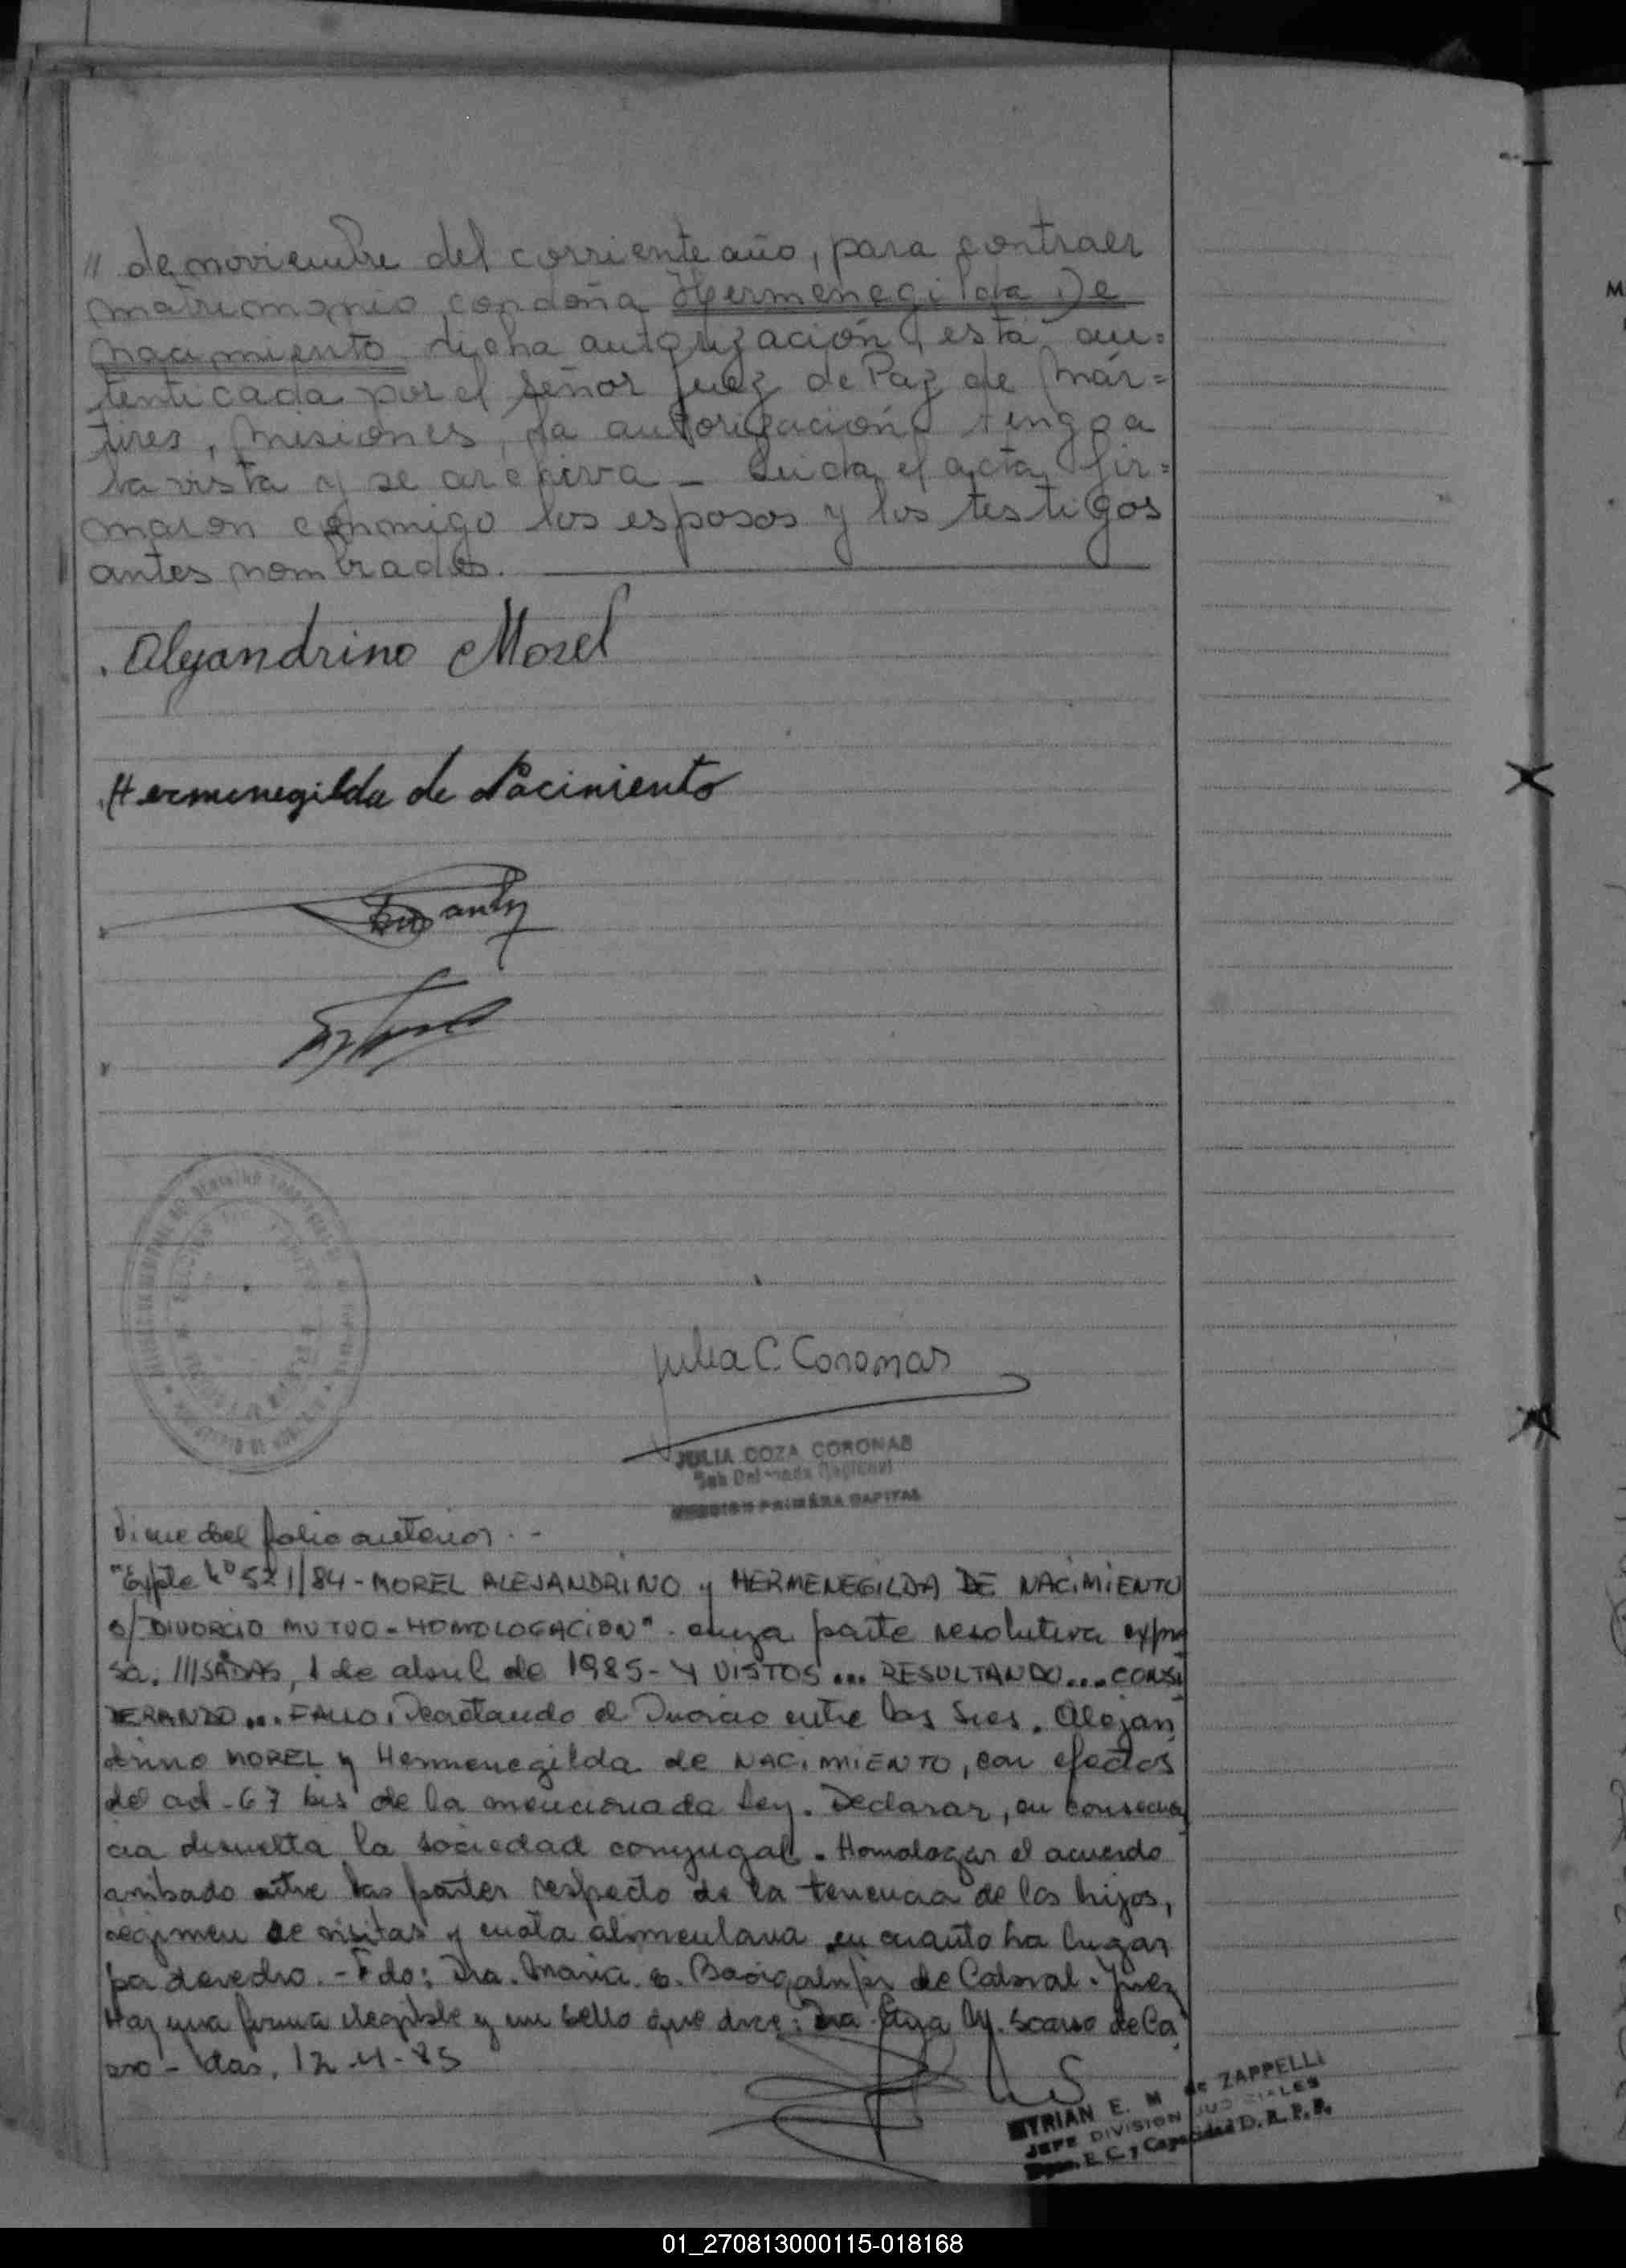 // de noviembre del corriente año, para contraer
matrimonio con doña Hermenegilda De
Nacimiento dicha autorización, está au=
tenticada por el señor Juez de Paz de Már=
tires, Misiones, la autorización tengo a
la vista y se archiva _ Leida el acta fir=
maron conmigo los esposos y los testigos
antes nombrados.
Alejandrino Morel
Hermenegilda de Nacimiento
Julia C. Coronas
JULIA COZA CORONAS
Sub Delegada Regional
SECCION PRIMERA CAPITAL
Viene del folio anterior . -
"Expte Nº 521/84 - MOREL ALEJANDRINO y HERMENEGILDA DE NACIMIENTO
S/ DIVORCIO MUTUO - HOMOLOGACION" - cuya parte resolutiva expre
sa. ///SADAS, 1 de abril de 1985 - Y VISTOS ... RESULTANDO ... CONSI
DERANDO ... FALLO: Decretando el Divorcio entre los Sres. Alejan
drino MOREL y Hermenegilda de NACIMIENTO, con efectos
del art - 67 bis de la mencionada Ley. Declarar, en consecuen
cia disuelta la sociedad conyugal. Homologar el acuerdo
arribado entre las partes respecto de la tenencia de los hijos,
régimen de visitas y cuota alimentaria en cuanto ha lugar
por derecho. - Fdo: Dra. Maria de Cabral - Juez
Hay una firma ilegible y un sello que dice: Dra. de Ca
- das, 12-4-85
MYRIAN E. M de ZAPPELLI
JEFE DIVISION JUDICIALES
Dpto. E. C. y Capacidad D. R. P. P.
01_270813000115-018168